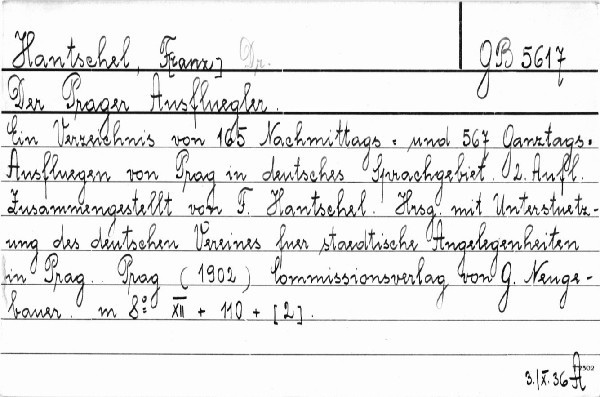 Hantschel, F[ranz] Dr.
GB 5617
Der Prager Ausfluegler.
Ein Verzeichnis von 165 Nachmittags- und 567 Ganztags-
Ausfluegen von Prag in deutsches Sprachgebiet. 2. Aufl.
Zusammengestellt von F. Hantschel. Hrsg. mit Unterstuetz-
ung des deutschen Vereines fuer staedtische Angelegenheiten
in Prag. Prag (1902) Commissionsverlag von G. Neuge-
bauer. m 8° XII + 110 + [2].
3./X. 36 A